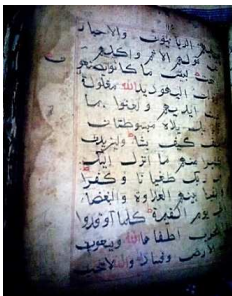 هم الربانيون والاحبار
قولهم الاثم واكلهم
لبئس ما كانوا يصنعو
اليهود يد الله مغلولة
ايديهم ولعنوا بما
يداه مبسوطتان
كيف يشاء وليزيدن
كثيرا منهم ما انزل اليك
ربك طغيانا وكفرا
بينهم العداوة والبغضاء
الى يوم القيمة كلما اوقدوا
للحرب اطفاها الله ويسعون
الارض فسادا والله لا يحب